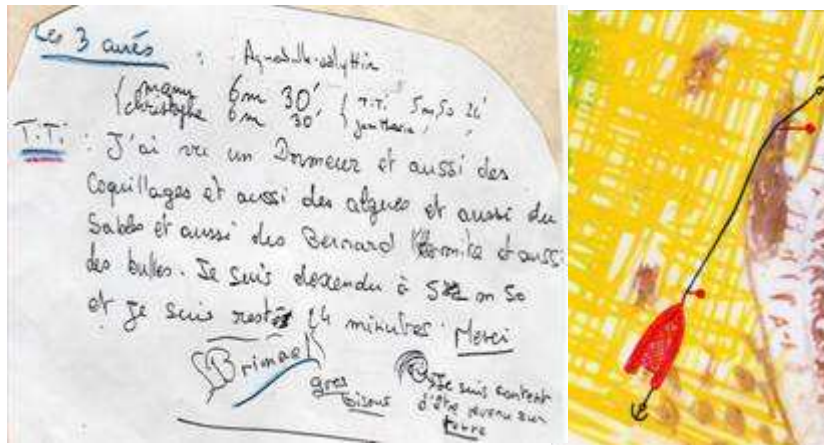 Les 3 curés :
manu 6m 30' { T.T. 5m,50 24'
christophe 6m 30'
T.T. : J'ai vu un Dormeur et aussi des
Coquillages et aussi des algues et aussi du
Sables et aussi des Bernard l'ermite et aussi
des bulles. Je suis descendu à 5 m 50
et je suis resté 24 minutes Merci
Brimael
gros
bisous
Je suis content
d'être revenu sur
terre